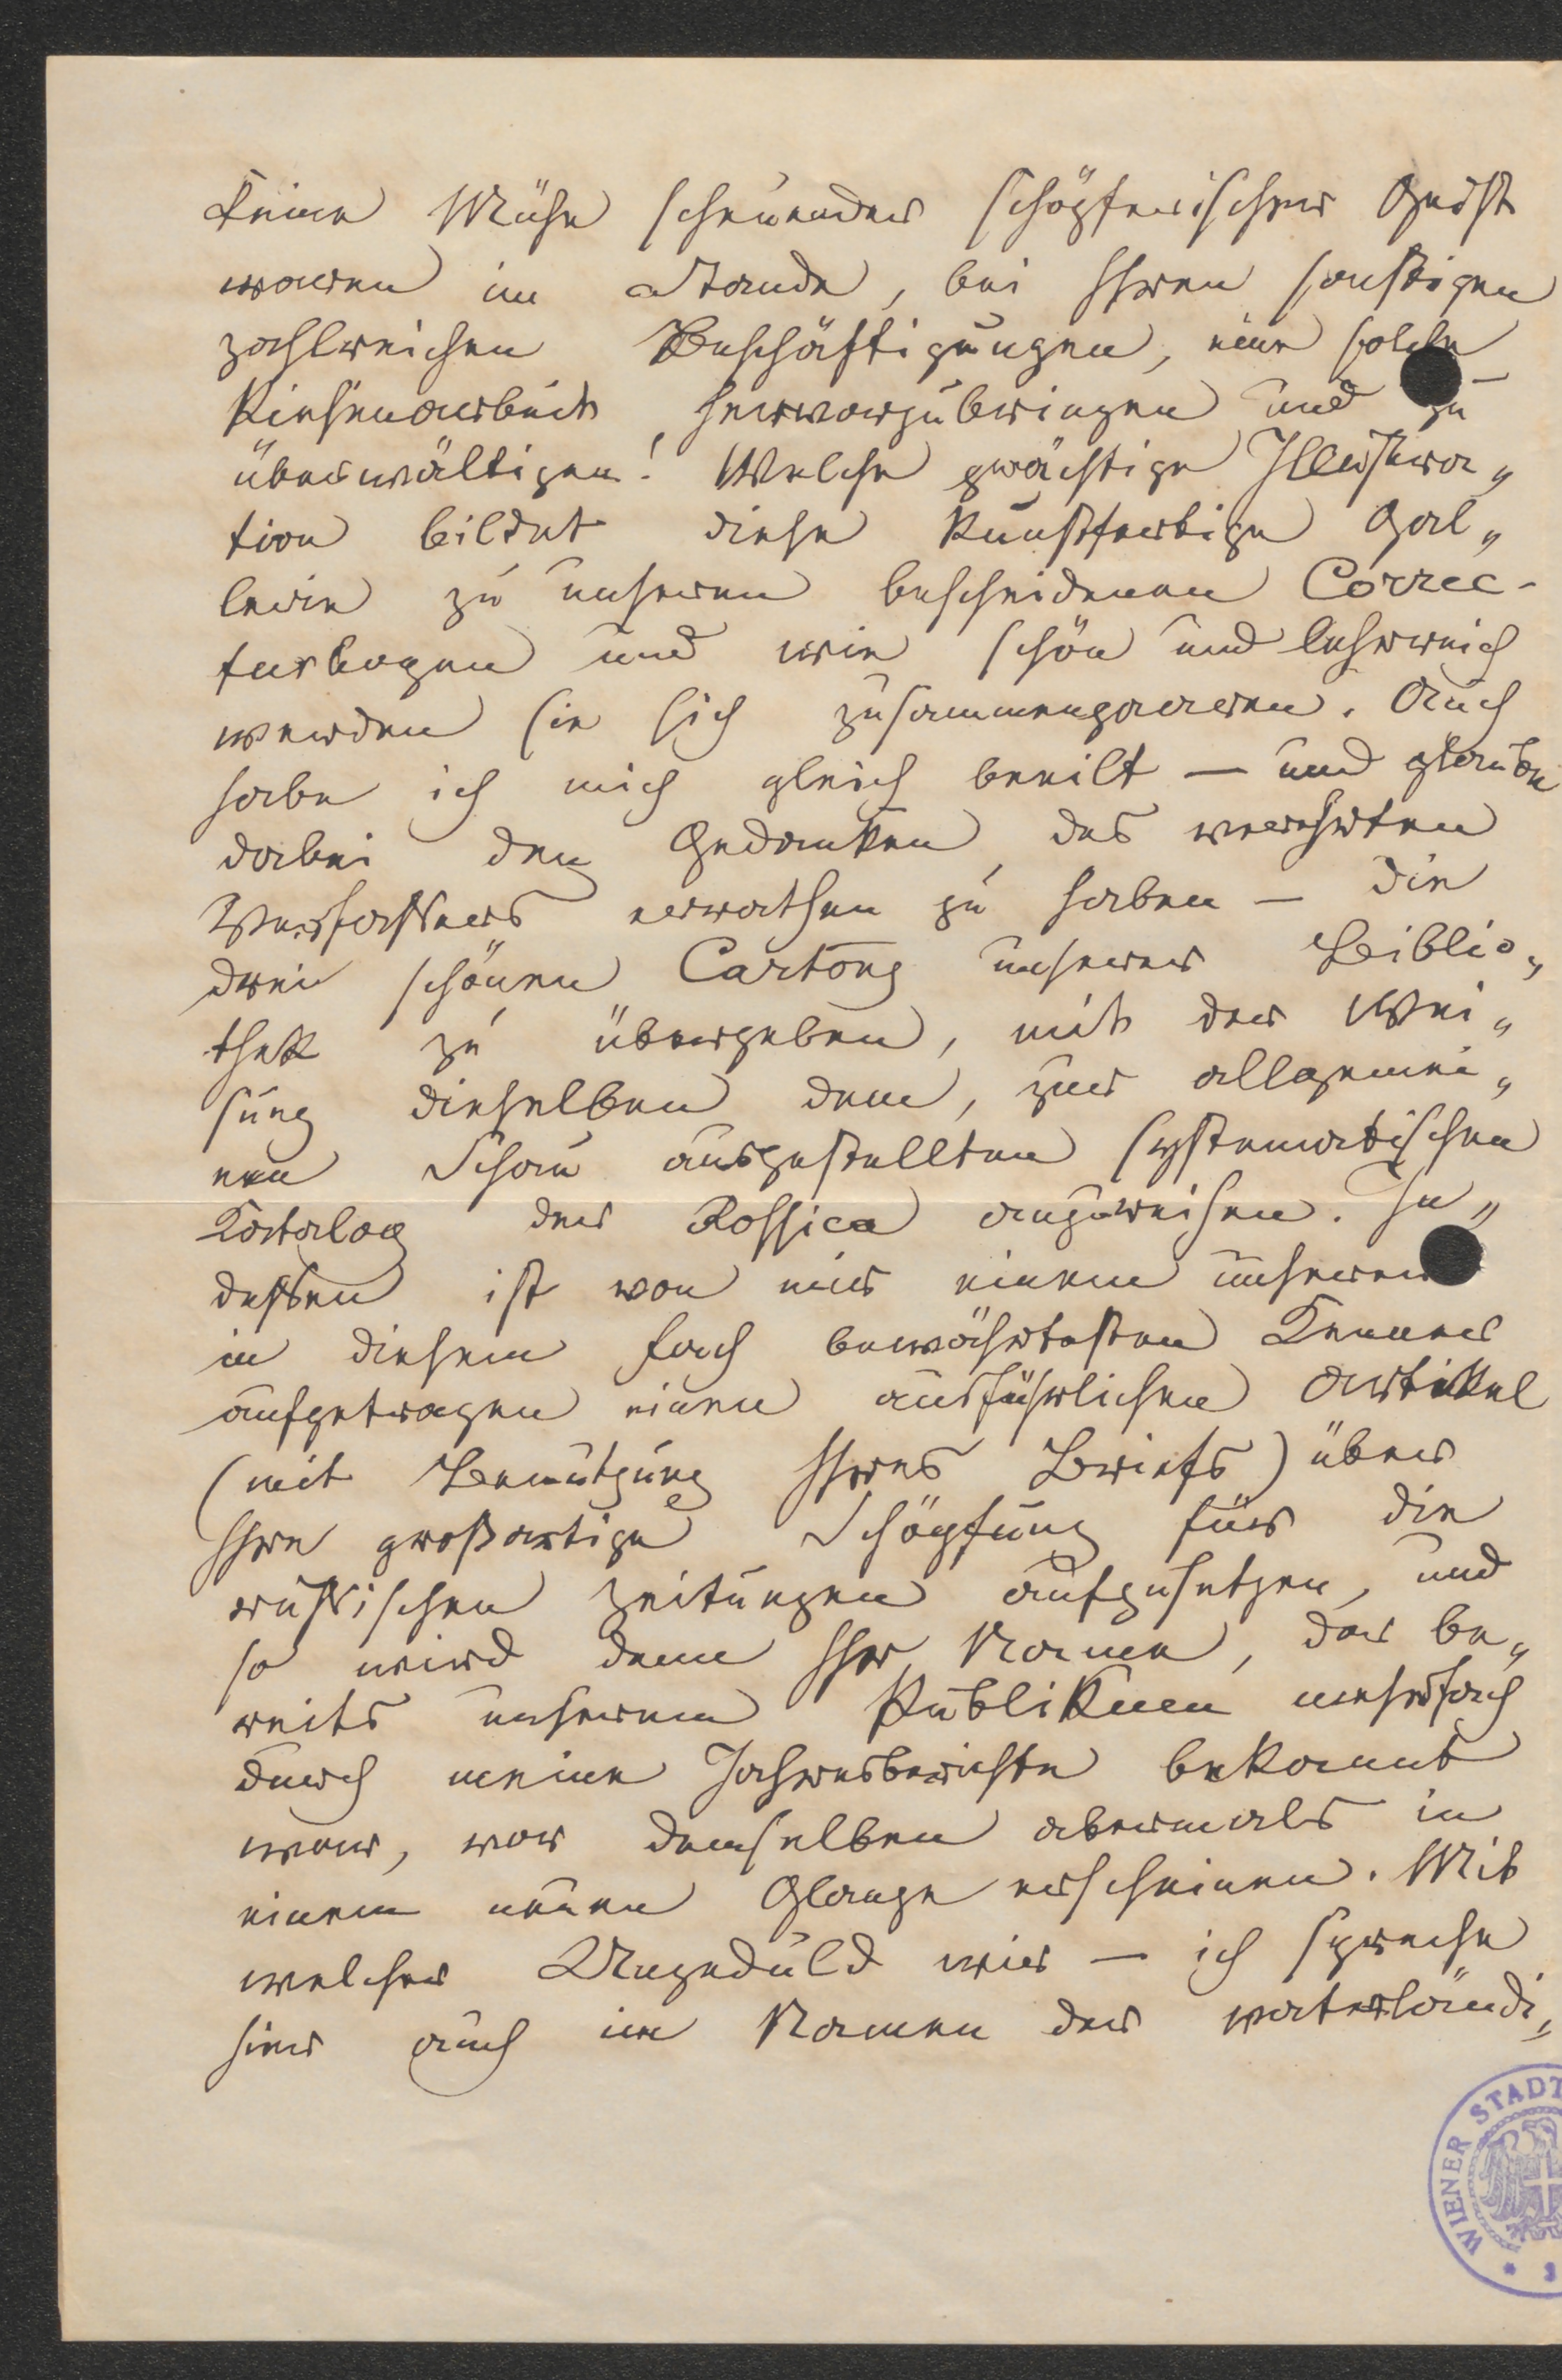 keine Mühe scheuender schöpferischer Geist
waren im Stande, bei Ihren sonstigen
zahlreichen Beschäftigungen, eine solche
Riesenarbeit hervorzubringen und zu
überwältigen! Welche prächtige Illustra„
tion bildet diese kunstfertige Gal„
lerie zu unseren bescheidenen Correc-
turbogen und wie schön und lehrreich
werden sie sich zusammenpaaren. Auch
habe ich mich gleich beeilt — und glaube
dabei den Gedanken des verehrten
Verfassers errathen zu haben — die
drei schönen Cartons unserer Biblio„
thek zu übergeben, mit der Wei„
sung dieselben dem, zur allgemei„
nen Schau ausgestellten systematischen
Katalog der Rossica anzuweisen. In„
dessen ist von mir einem unserer
in diesem Fach bewährtesten Kenner
aufgetragen einen ausführlichen Artikel
(mit Benützung Ihres Briefs) über
Ihre großartige Schöpfung für die
russischen Zeitungen aufzusetzen, und
so wird denn Ihr Name, der be„
reits unserem Publikum mehrfach
durch meine Jahresberichte bekannt
war, vor demselben abermals in
einem neuen Glanze erscheinen. Mit
welcher Ungeduld wir — ich spreche
hier auch im Namen der vaterländi„
WIENER STADT